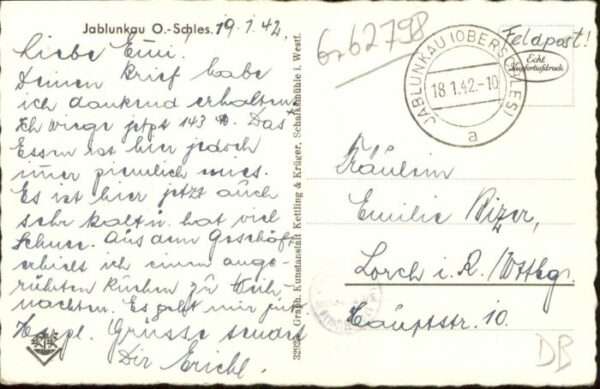 Jablunkau O.-Schles. 19.1.42.
Liebe Emi.
Deinen Brief habe
ich dankend erhalten.
Ich wiege jetzt 143 Das
Essen ist hier jedoch
immer ziemlich mies.
Es ist hier jetzt auch
sehr kalt u. hat viel
Schnee. Aus dem Geschäft
erhielt ich einen ange-
rührten Kuchen zu Weih-
nachten. Es geht mir gut
Herzl. Grüsse sendet
Dir Erich.
32923 Graph. Kunstanstalt Kettling & Krüger, Schalksmühle i. Westf.
62798
Feldpost!
Echt
Kupfertiefdruck
JABLUNKAU (OBERSCHLES)
18.1.42.-10
a
Fräulein
Emilie Pizer,
Lorch i. R./Wttbg.
Hauptstr. 10.
DB